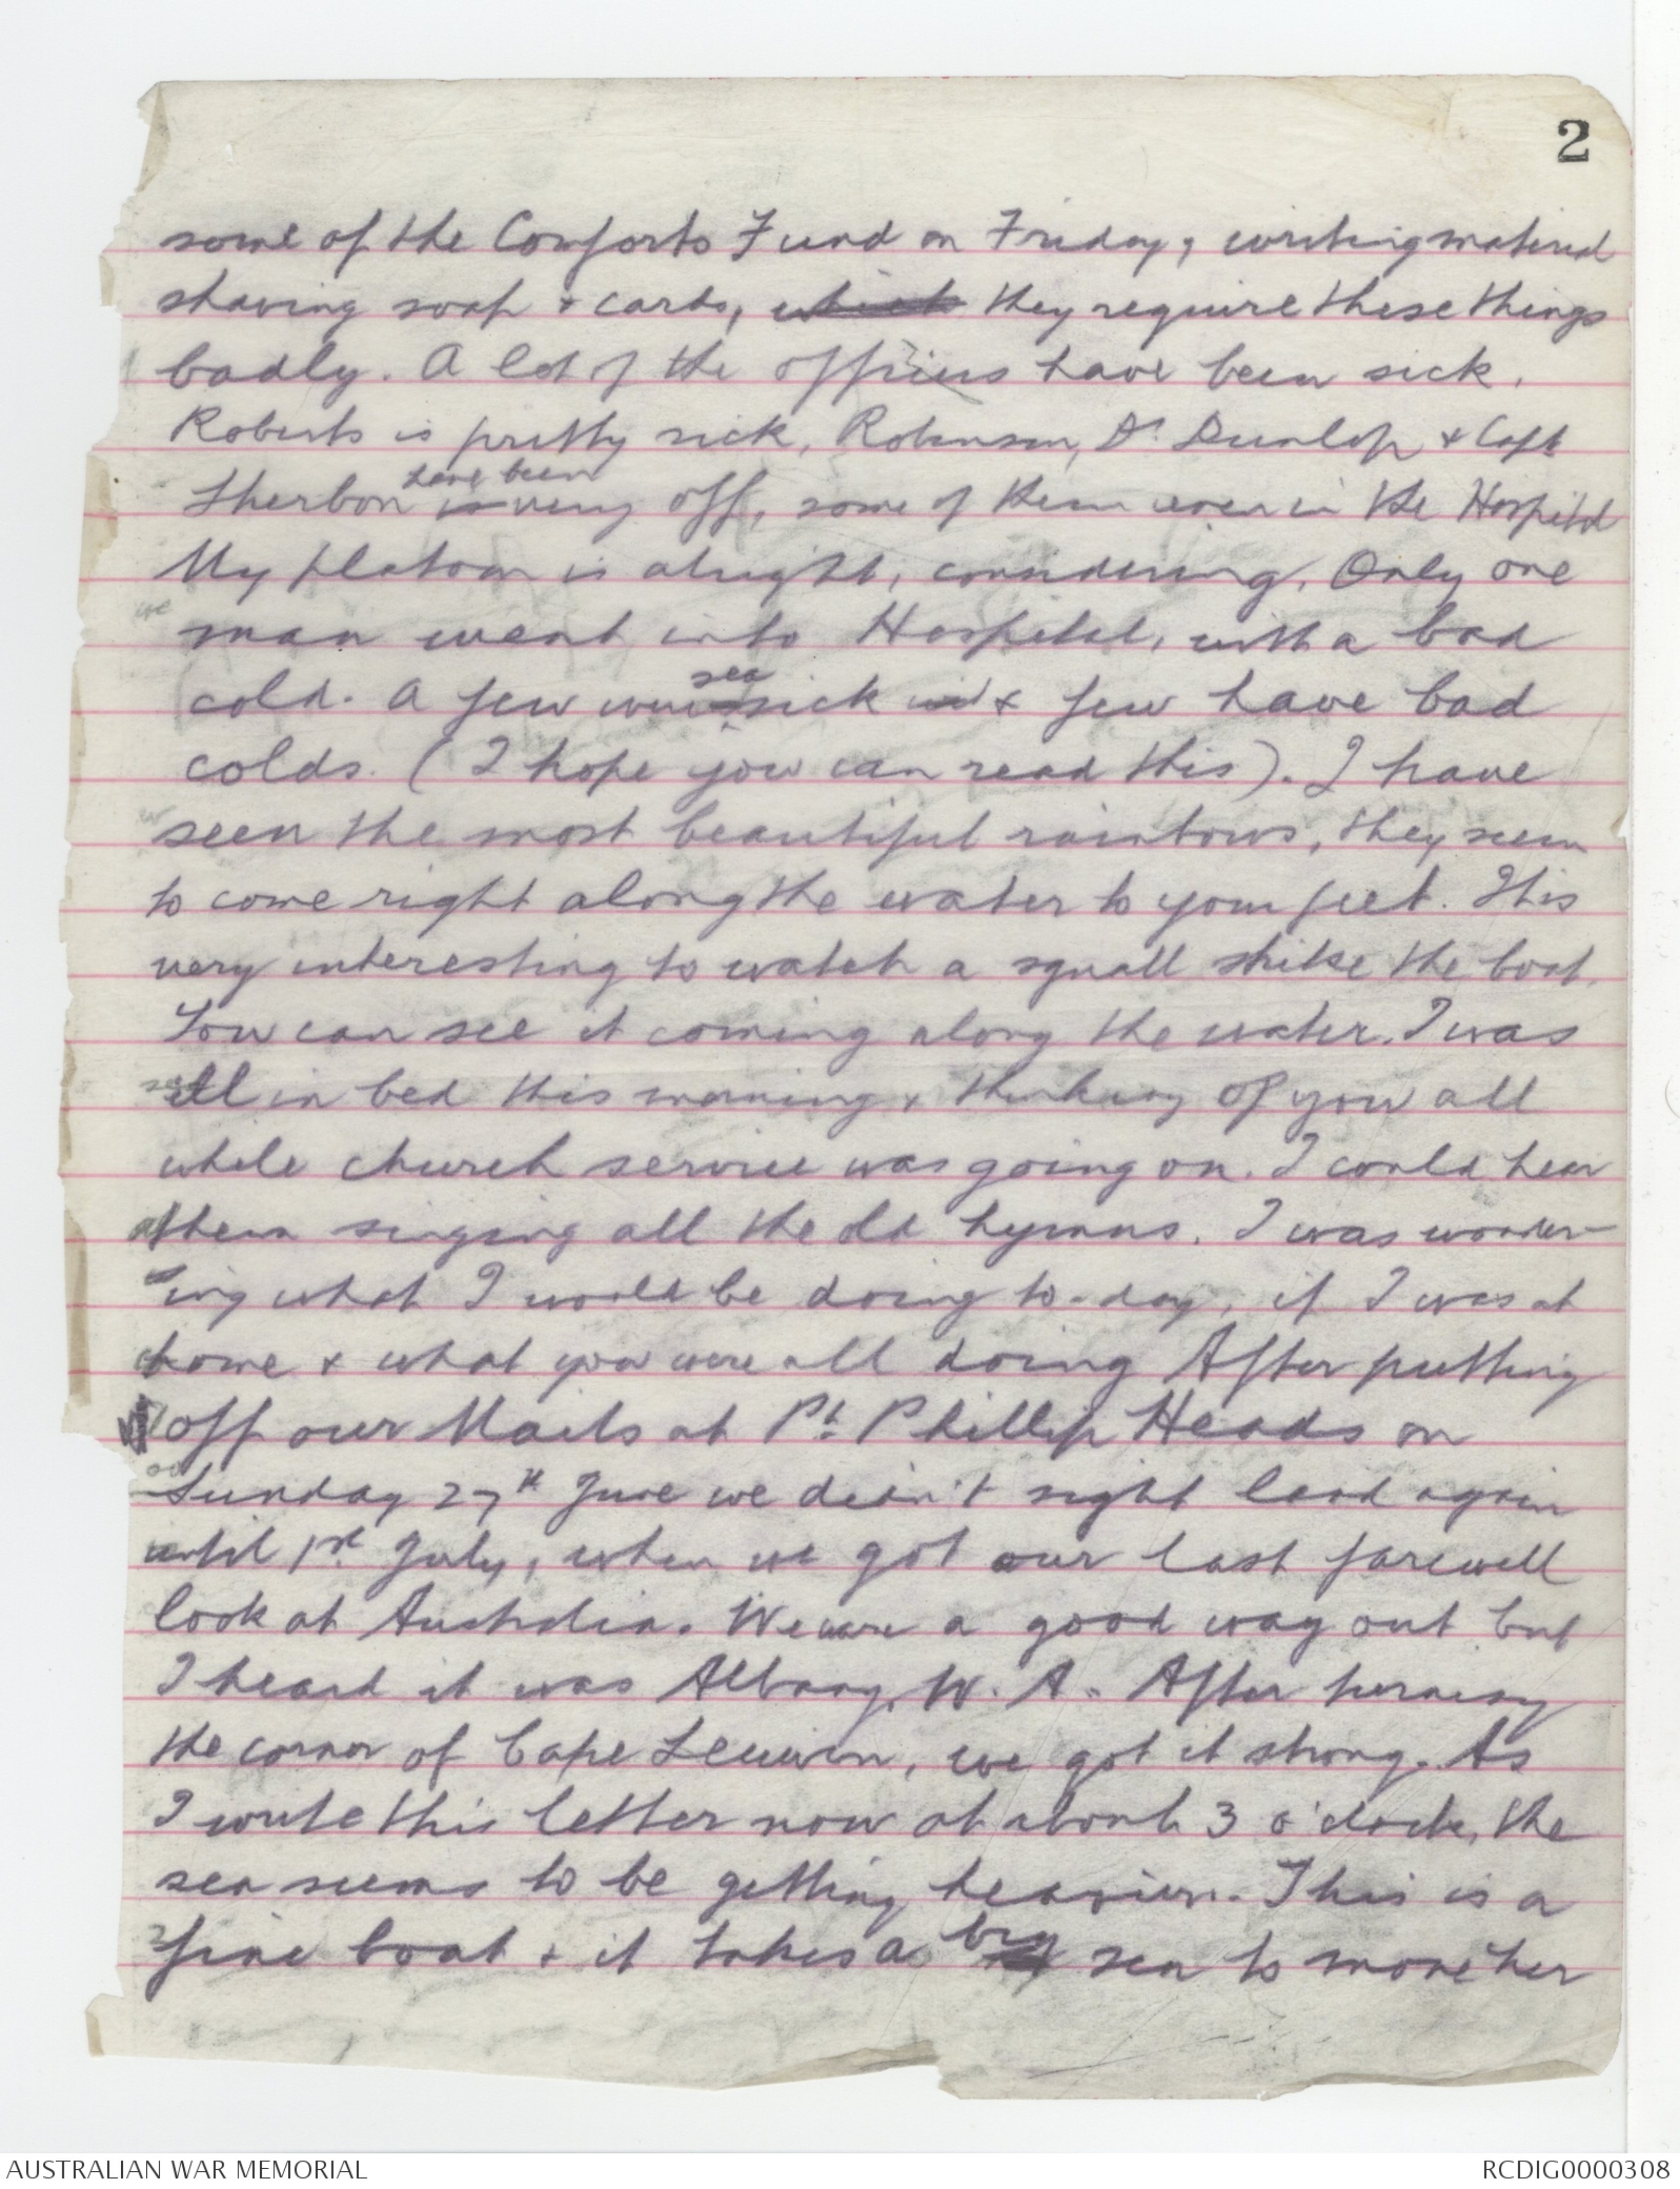 2
some of the Comforts Fund on Friday, writing material
shaving soap & cards, which they require these things
badly. A lot of the officers have been sick.
Roberts is pretty sick, Robinson, Dr. Dunlop & Capt
Sherbon have been is very off, some of them even in the Hospital
My platoon is alright, considering. Only one
man went into Hospital, with a bad
cold. A few were sea sick & few have bad
colds. (I hope you can read this). I have
seen the most beautiful rainbows, they seem
to come right along the water to your feet. It is
very interesting to watch a squall strike the boat.
You can see it coming along the water. I was
still in bed this morning & thinking of you all
while church service was going on. I could hear
them singing all the old hymns. I was wonder-
ing what I would be doing to-day, if I was at
home & what you were all doing After putting
off our Mails at Pt. Phillip Heads on
Sunday 27th June we didn't sight land again
until 1st July, when we got our last farewell
look at Australia. We were a good way out but
I heard it was Albany, W. A. After turning
the corner of Cape Leuwin, we got it strong. As
I write this letter now at about 3 o'clock, the
sea seems to be getting heavier. This is a
fine boat & it takes a big sea to move her
AUSTRALIAN WAR MEMORIAL
RCDIG0000308